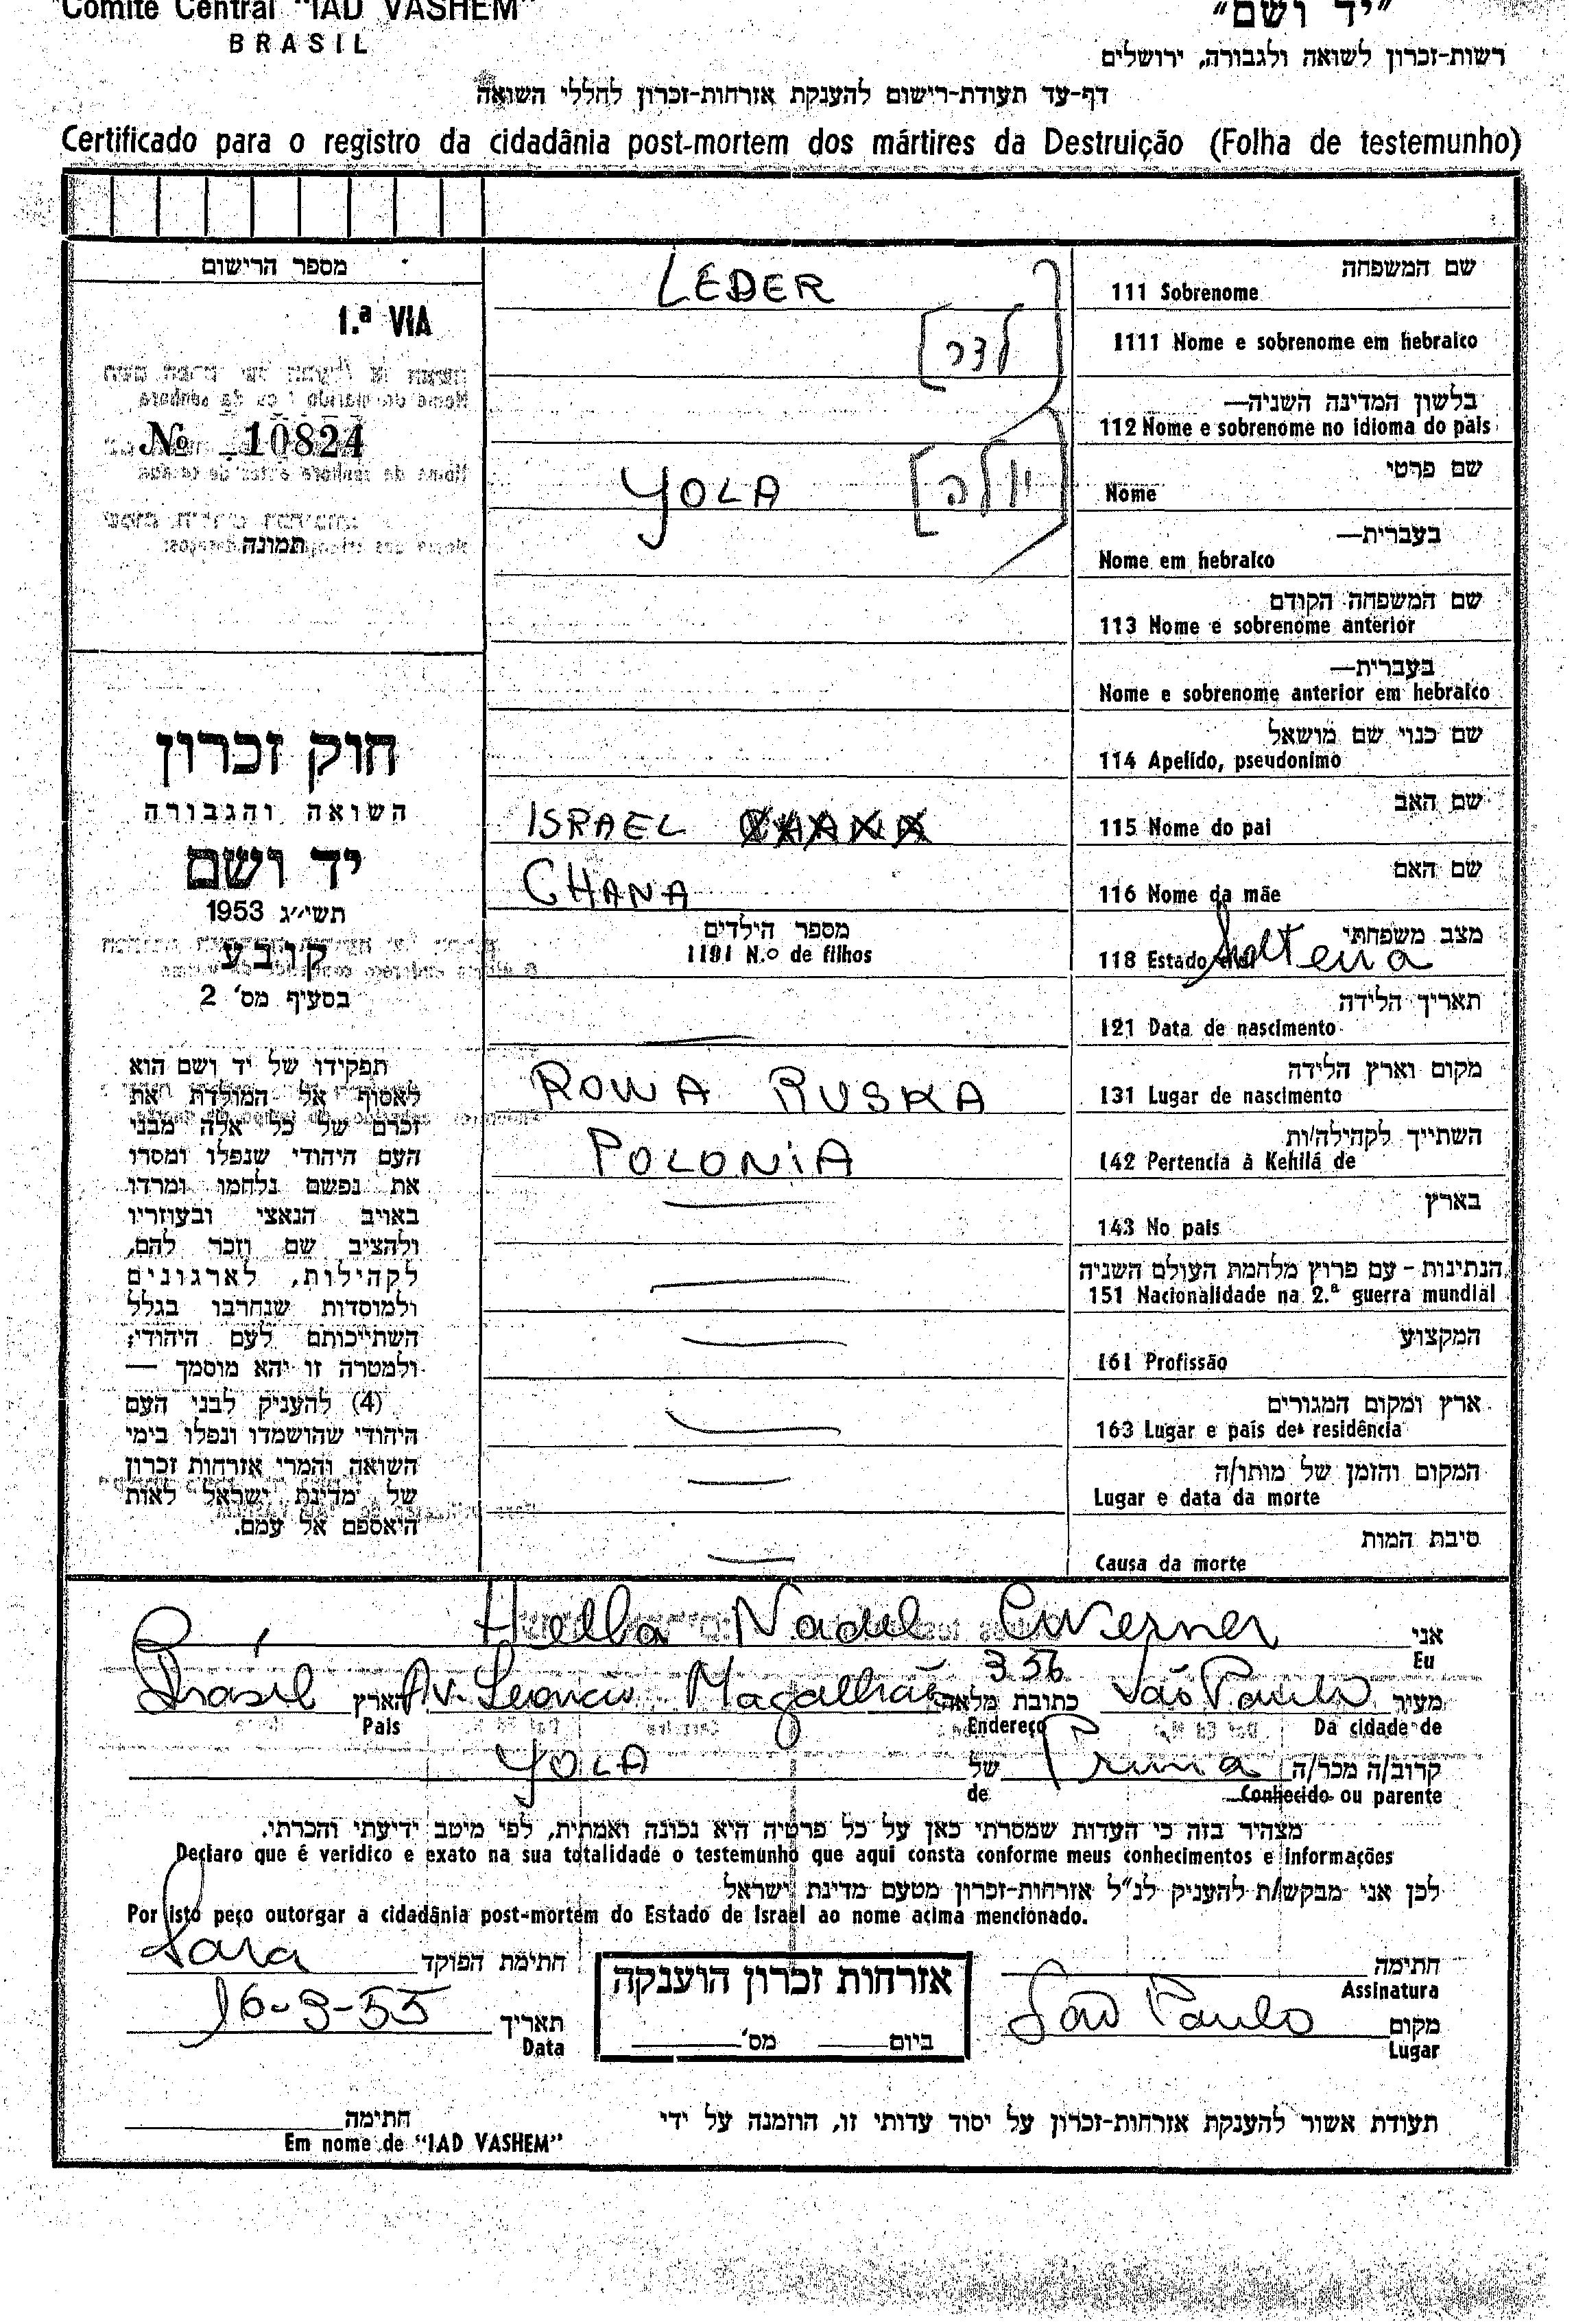 Comité Central "IAD VASHEM"
BRASIL
"יד ושם"
רשות-זכרון לשואה ולגבורה, ירושלים
דף-עד תעודת-רישום להענקת אזרחות-זכרון לחללי השואה
Certificado para o registro da cidadânia post-mortem dos mártires da Destruição (Folha de testemunho)
מספר הרישום
1.ª VIA
№ 10824
תמונה
חוק זכרון
השואה והגבורה
יד ושם
תשי״ג 1953
קובע
בסעיף מס' 2
תפקידו של יד ושם הוא
לאסוף אל המולדת את
זכרם של כל אלה מבני
העם היהודי שנפלו ומסרו
את נפשם נלחמו ומרדו
באויב הנאצי ובעוזריו
ולהציב שם וזכר להם,
לקהילות, לארגונים
ולמוסדות שנחרבו בגלל
השתייכותם לעם היהודי;
ולמטרה זו יהא מוסמך —
(4) להעניק לבני העם
היהודי שהושמדו ונפלו בימי
השואה והמרי אזרחות זכרון
של מדינת ישראל לאות
היאספם אל עמם.
שם המשפחה
111 Sobrenome LEDER
1111 Nome e sobrenome em hebraico [לדר]
בלשון המדינה השניה—
112 Nome e sobrenome no idioma do pais
שם פרטי
Nome YOLA [יולה]
בעברית—
Nome em hebraico
שם המשפחה הקודם
113 Nome e sobrenome anterior
בעברית—
Nome e sobrenome anterior em hebraico
שם כנוי שם מושאל
114 Apelido, pseudonimo
שם האב
115 Nome do pai ISRAEL CHANA
שם האם
116 Nome da mãe CHANA
מצב משפחתי
118 Estado civil Solteira
מספר הילדים
1191 N.º de filhos
תאריך הלידה
121 Data de nascimento
מקום וארץ הלידה
131 Lugar de nascimento ROWA RUSKA
השתייך לקהילה/ות
142 Pertencia à Kehilá de POLONIA
בארץ
143 No pais
הנתינות - עם פרוץ מלחמת העולם השניה
151 Nacionalidade na 2.ª guerra mundial
המקצוע
161 Profissão
ארץ ומקום המגורים
163 Lugar e país de residência
המקום והזמן של מותו/ה
Lugar e data da morte
סיבת המות
Causa da morte
אני
Eu Hella Nadel
מעיר São Paulo כתובת מלאה Av. Magalhães 356 הארץ Brásil
Da cidade de Endereço Pais
קרוב/ה מכר/ה Prima של YOLA
Conhecido ou parente de
מצהיר בזה כי העדות שמסרתי כאן על כל פרטיה היא נכונה ואמתית, לפי מיטב ידיעתי והכרתי.
Declaro que é veridico e exato na sua totalidade o testemunho que aqui consta conforme meus conhecimentos e informações
לכן אני מבקש/ת להעניק לנ"ל אזרחות-זכרון מטעם מדינת ישראל
Por isto peço outorgar a cidadânia post-mortem do Estado de Israel ao nome acima mencionado.
חתימה
Assinatura
חתימת הפוקד Sara
אזרחות זכרון הוענקה
ביום מס'
מקום São Paulo
Lugar
תאריך 16-9-55
Data
תעודת אשור להענקת אזרחות-זכרון על יסוד עדותי זו, הוזמנה על ידי
חתימה
Em nome de "IAD VASHEM"